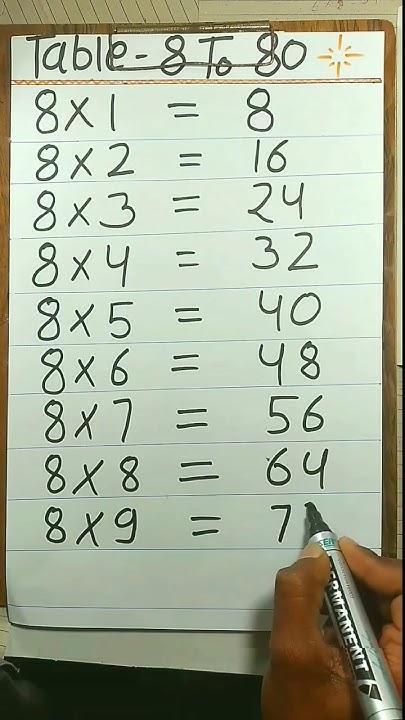 Table - 8 To 80
8 × 1 = 8
8 × 2 = 16
8 × 3 = 24
8 × 4 = 32
8 × 5 = 40
8 × 6 = 48
8 × 7 = 56
8 × 8 = 64
8 × 9 = 7
PERMANENT